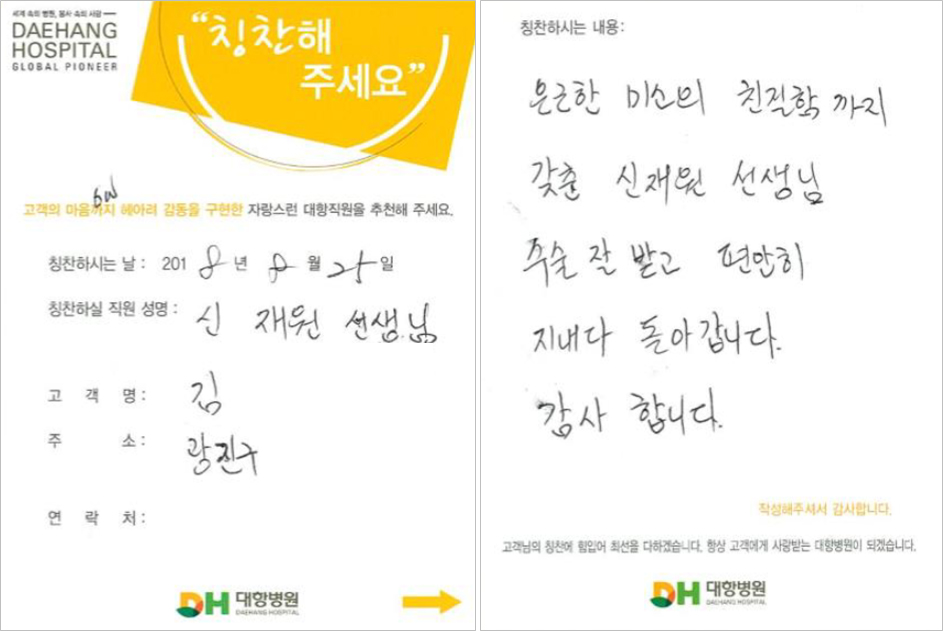 세계 속의 병원, 봉사 속의 사랑
DAEHANG
HOSPITAL
GLOBAL PIONEER
“칭찬해
주세요”
6W
고객의 마음까지 헤아려 감동을 구현한 자랑스런 대항직원을 추천해 주세요.
칭찬하시는 날 : 2018년 8월 25일
칭찬하실 직원 성명 : 신재원 선생님
고 객 명 : 김
주 소 : 광진구
연 락 처 :
DH 대항병원
DAEHANG HOSPITAL
칭찬하시는 내용 :
은근한 미소의 친절함까지
갖춘 신재원 선생님
수술 잘 받고 편안히
지내다 돌아갑니다.
감사 합니다.
작성해주셔서 감사합니다.
고객님의 칭찬에 힘입어 최선을 다하겠습니다. 항상 고객에게 사랑받는 대항병원이 되겠습니다.
DH 대항병원
DAEHANG HOSPITAL